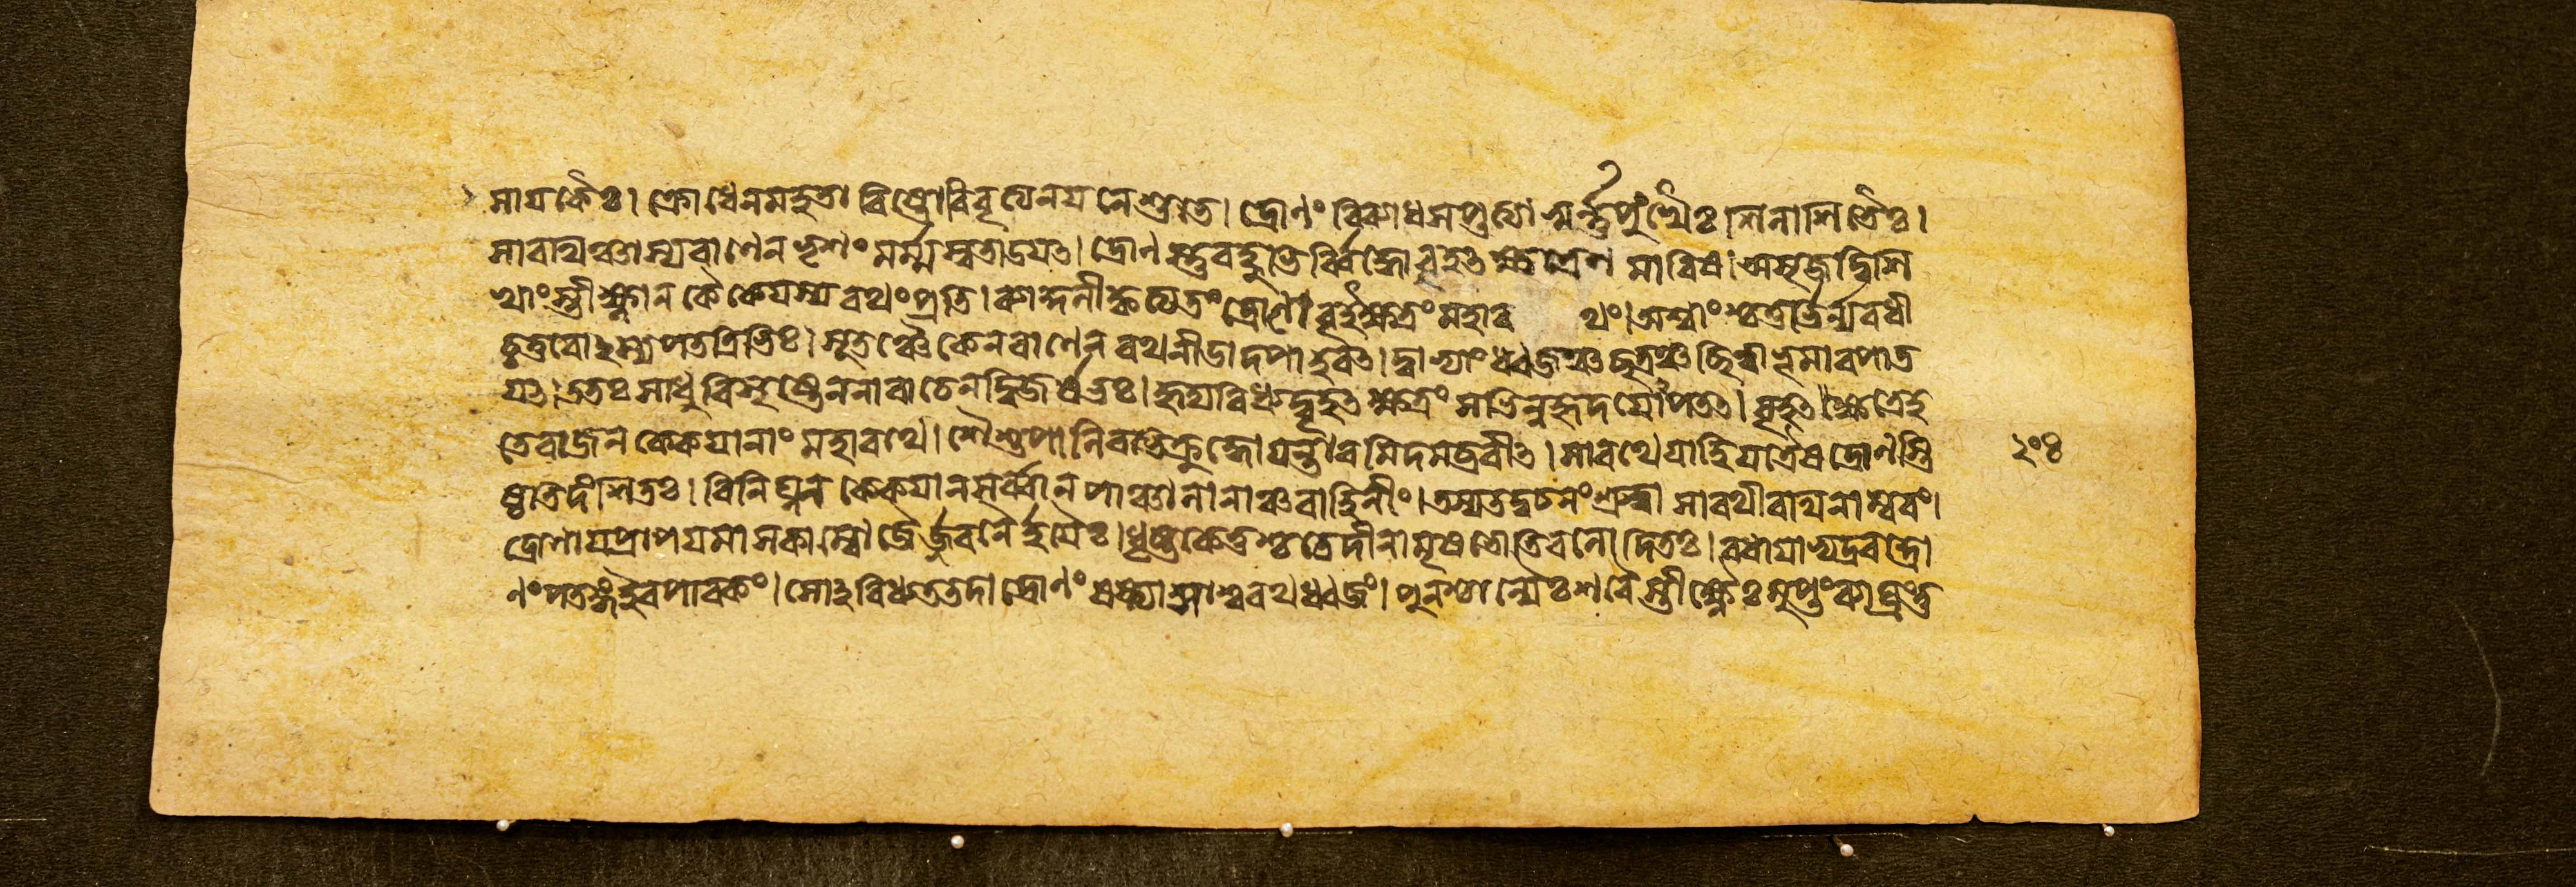 সাযকৈঃ। ক্রোধেনমহতা বিষ্টোবিবৃত্যনযনেশুভে। দ্রোণং বিব্যাধসপ্তত্যা স্বর্ন্নপুংখৈঃশিলাশিতৈঃ।
সারথিঞ্চাস্যবাণেন ভৃশং মর্ম্মস্বতাডযৎ। দ্রোণস্তুবহুভির্ব্বিদ্ধো বৃহৎক্ষত্রেণ মারিষ। অসৃজদ্বিশি
খাংস্তীক্ষ্ণান কৈকেযস্য রথংপ্রতি। ব্যাকুলীকৃত্যতংদ্রোণো বৃহৎক্ষত্রংমহার থং। অশ্বাংশ্চতুর্ভির্ন্যবধী
চ্চতুরোঽস্যপতত্রিভিঃ। সূতঞ্চৈকেনবাণেন রথনীডাদপাহরৎ। দ্বাভ্যাংধ্বজঞ্চছত্রঞ্চ ছিত্বাভূমাবপাত
যৎ। ততঃসাধুবিসৃষ্টেননারাচেনদ্বিজর্ষভঃ। হৃদ্যবিধ্যদ্বৃহৎক্ষত্রং সভিন্নহৃদযোপতৎ। বৃহৎক্ষত্রেহ
তেরাজন কেকযানাং মহারথে। শৈশুপালিরভিক্রুদ্ধোযন্তারমিদমব্রবীৎ। সারথেযাহিযত্রৈষদ্রোণস্তি
ষ্ঠতিদংশিতঃ। বিনিঘ্নন কেকযানসর্ব্বান পাঞ্চালানাঞ্চবাহিনীং। তস্যতদ্বচনংশ্রুত্বা সারথীরথিনাম্বরং।
দ্রোণাযপ্রাপযামাসকাম্বোজৈর্জ্জবনৈর্হযৈঃ। ধৃষ্টকেতুশ্চচেদীনামৃষভোতিবলোদিতঃ। বধাযাভ্যদ্রবদ্দ্রো
ণংপতঙ্গইবপাবকং। সোঽবিধ্যত্ততদা দ্রোণংষষ্ট্যাসাশ্বরথধ্বজং। পুনশ্চান্যৈঃশরৈস্তীক্ষ্ণৈঃসুপ্তংব্যাঘ্রংতু